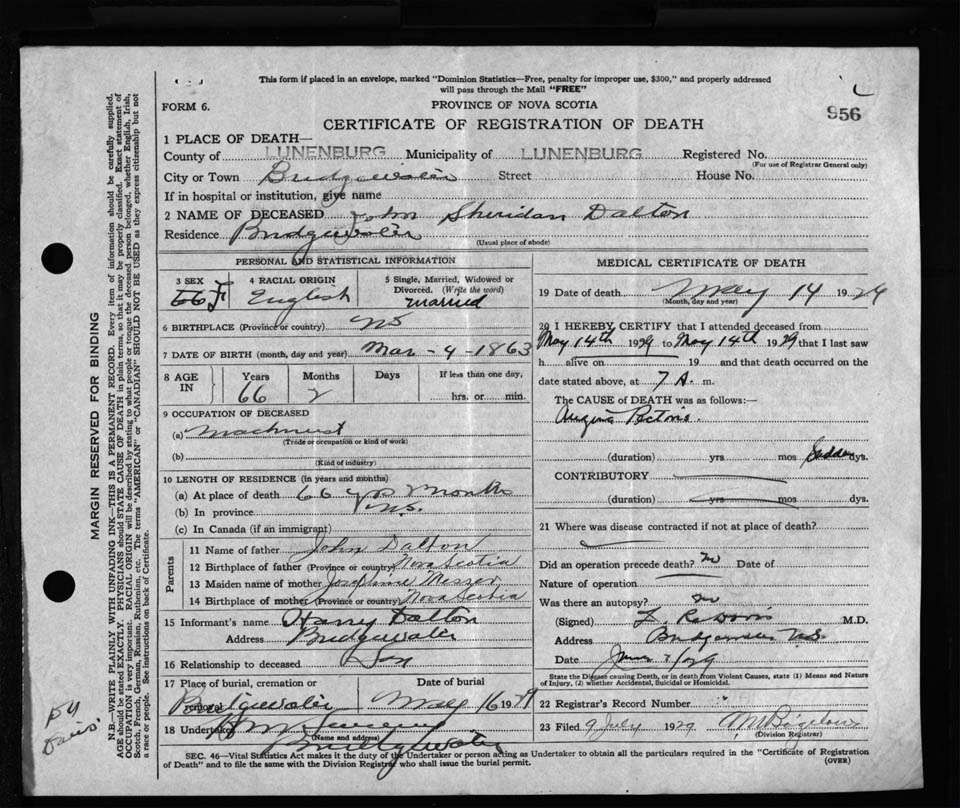 This form if placed in an envelope, marked "Dominion Statistics—Free, penalty for improper use, $300," and properly addressed
will pass through the Mail "FREE"
FORM 6.
PROVINCE OF NOVA SCOTIA
956
CERTIFICATE OF REGISTRATION OF DEATH
1 PLACE OF DEATH—
County of LUNENBURG Municipality of LUNENBURG Registered No.
(For use of Registrar General only)
City or Town Bridgewater Street House No.
If in hospital or institution, give name
2 NAME OF DECEASED John Sheridan Dalton
Residence Bridgewater
(Usual place of abode)
PERSONAL AND STATISTICAL INFORMATION
3 SEX
4 RACIAL ORIGIN English
5 Single, Married, Widowed or
Divorced. (Write the word)
married
6 BIRTHPLACE (Province or country) NS
7 DATE OF BIRTH (month, day and year) Mar - 4 - 1863
8 AGE IN
Years Months Days If less than one day,
66 2 hrs. or min.
9 OCCUPATION OF DECEASED
(a) Machinist
(Trade or occupation or kind of work)
(b)
(Kind of industry)
10 LENGTH OF RESIDENCE (in years and months)
(a) At place of death 66 Months
(b) In province N.S.
(c) In Canada (if an immigrant)
Parents
11 Name of father John Dalton
12 Birthplace of father (Province or country) Nova Scotia
13 Maiden name of mother Josephine Messer
14 Birthplace of mother (Province or country) Nova Scotia
15 Informant's name Harry Dalton
Address Bridgewater
16 Relationship to deceased Son
17 Place of burial, cremation or Date of burial
removal Bridgewater May 16 1929
18 Undertaker
(Name and address)
Bridgewater
MEDICAL CERTIFICATE OF DEATH
19 Date of death May 14 1929
(Month, day and year)
20 I HEREBY CERTIFY that I attended deceased from
May 14th 1929 to May 14th 1929 that I last saw
h alive on 19 and that death occurred on the
date stated above, at 7 A. m.
The CAUSE of DEATH was as follows:
Angina Pectoris
(duration) yrs mos Sudden dys.
CONTRIBUTORY
(duration) yrs mos dys.
21 Where was disease contracted if not at place of death?
Did an operation precede death? No Date of
Nature of operation
Was there an autopsy? No
(Signed) M.D.
Address Bridgewater N.S.
Date
State the Disease causing Death, or in death from Violent Causes, state (1) Means and Nature
of Injury, (2) whether Accidental, Suicidal or Homicidal.
22 Registrar's Record Number
23 Filed 9 July 1929
(Division Registrar)
SEC. 46—Vital Statistics Act makes it the duty of the Undertaker or person acting as Undertaker to obtain all the particulars required in the "Certificate of Registration
of Death" and to file the same with the Division Registrar who shall issue the burial permit. (OVER)
MARGIN RESERVED FOR BINDING
N.B.—WRITE PLAINLY WITH UNFADING INK—THIS IS A PERMANENT RECORD. Every item of information should be carefully supplied.
AGE should be stated EXACTLY. PHYSICIANS should STATE CAUSE OF DEATH in plain terms, so that it may be properly classified. Exact statement of
OCCUPATION is very important. RACIAL ORIGIN will be described by stating to what people or tongue the deceased person belonged, whether English, Irish,
Scotch, French, German, Russian, Ruthenian, etc. The terms "AMERICAN" or "CANADIAN" SHOULD NOT BE USED as they express citizenship but not
a race or people. See instructions on back of Certificate.